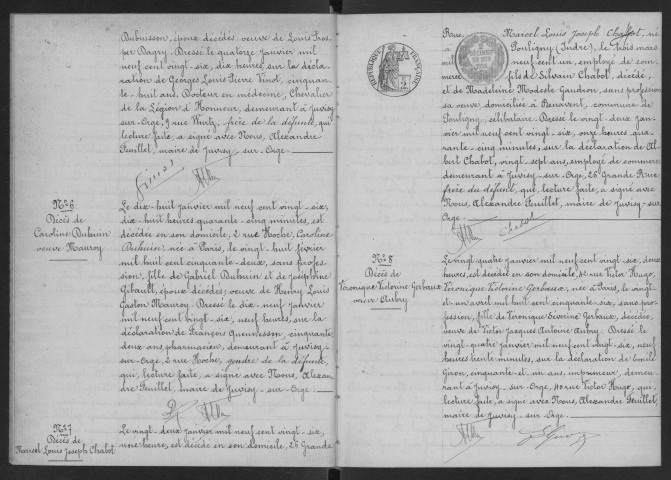 Dubuisson, époux décédés, veuve de Louis Pros-
per Dagry. Dressé le quatorze janvier mil
neuf cent vingt-six, dix heures, sur la décla-
ration de Georges Louis Pierre Vinot, cinquan-
te-huit ans, Docteur en médecine, Chevalier
de la Légion d'Honneur, demeurant à Juvisy
sur-Orge, 9 rue Wurtz, frère de la défunte, qui,
lecture faite, a signé avec Nous, Alexandre
Feuillet, maire de Juvisy-sur-Orge.
N° 6
Décès de
Caroline Dubuin
veuve Mauroy
Le dix-huit janvier mil neuf cent vingt-six,
dix-huit heures quarante-cinq minutes, est
décédée en son domicile, 2 rue Hoche, Caroline
Dubuin, née à Paris, le vingt-huit février
mil huit cent cinquante-deux, sans profes-
sion, fille de Gabriel Dubuin et de Joséphine
Gibault, époux décédés; veuve de Henry Louis
Gaston Mauroy. Dressé le dix-neuf janvier
mil neuf cent vingt-six, neuf heures, sur la
déclaration de François Quenesson, cinquante
deux ans, pharmacien, demeurant à Juvisy-
sur-Orge, 2 rue Hoche, gendre de la défunte,
qui, lecture faite, a signé avec Nous, Alexan-
dre Feuillet, maire de Juvisy-sur-Orge
N° 7
Décès de
Marcel Louis Joseph Chabot
Le vingt-deux janvier mil neuf cent vingt-six,
une heure, est décédé en son domicile, 26 Grande
Rue, Marcel Louis Joseph Chabot, né
à Pouligny (Indre), le trois mars
mil neuf cent un, employé de com-
merce, fils de Silvain Chabot, décédé,
et de Madeleine Modeste Gaudron, sans profession
sa veuve, domiciliée à Benavent, commune de
Pouligny, célibataire. Dressé le vingt-deux jan-
vier mil neuf cent vingt-six, onze heures qua-
rante-cinq minutes, sur la déclaration de Al-
bert Chabot, vingt-sept ans, employé de commerce,
demeurant à Juvisy-sur-Orge, 26 Grande Rue,
frère du défunt, qui, lecture faite, a signé avec
Nous, Alexandre Feuillet, maire de Juvisy-sur
Orge.
Chabot
N° 8
Décès de
Véronique Victorine Gerbaux
veuve Aubry
Le vingt-quatre janvier mil neuf cent vingt-six, deux
heures, est décédée en son domicile, 40 rue Victor Hugo,
Véronique Victorine Gerbaux, née à Paris, le vingt-
et-un avril mil huit cent cinquante-six, sans pro-
fession, fille de Véronique Séverine Gerbaux, décédée,
veuve de Victor Jacques Antoine Aubry. Dressé le
vingt-quatre janvier mil neuf cent vingt-six, neuf
heures trente minutes, sur la déclaration de Emile
Giron, cinquante-et-un ans, imprimeur, demeu-
rant à Juvisy-sur-Orge, 40 rue Victor Hugo, qui,
lecture faite, a signé avec Nous, Alexandre Feuillet
maire de Juvisy-sur-Orge.